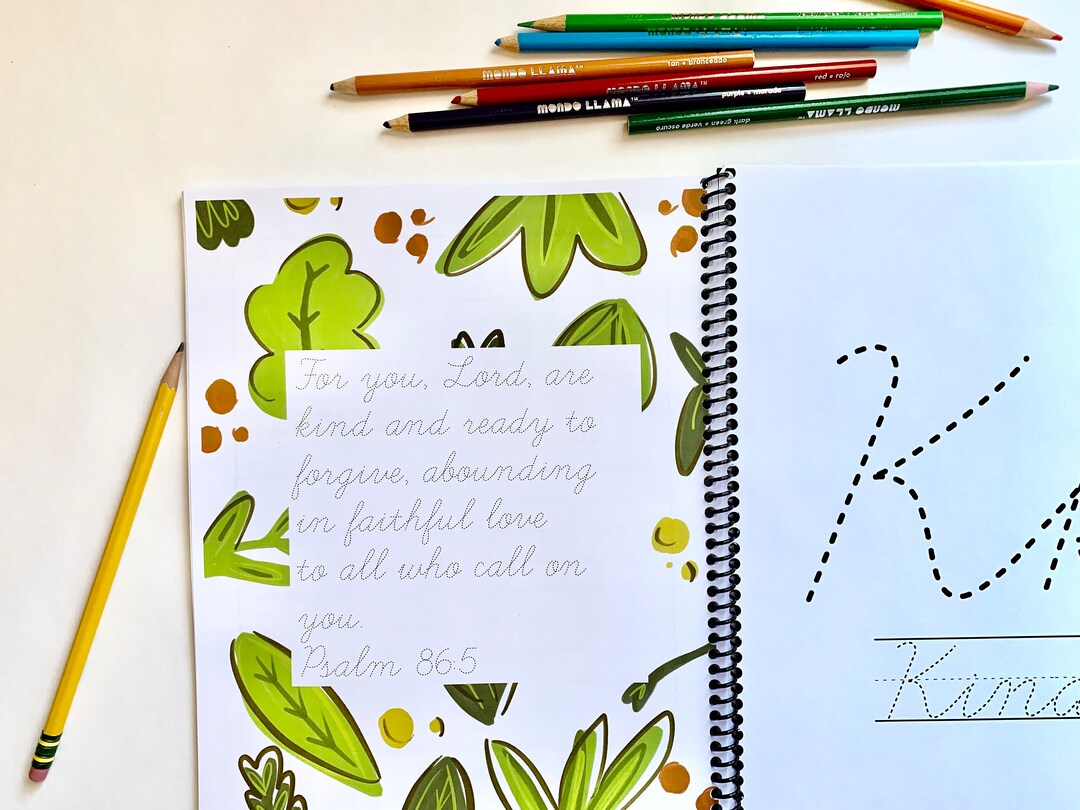 MONDO LLAMA™
MONDO LLAMA™ tan • bronceado
MONDO LLAMA™ red • rojo
MONDO LLAMA™ purple • morado
dark green • verde oscuro MONDO LLAMA™
For you, Lord, are
kind and ready to
forgive, abounding
in faithful love
to all who call on
you.
Psalm 86:5
K
Kind